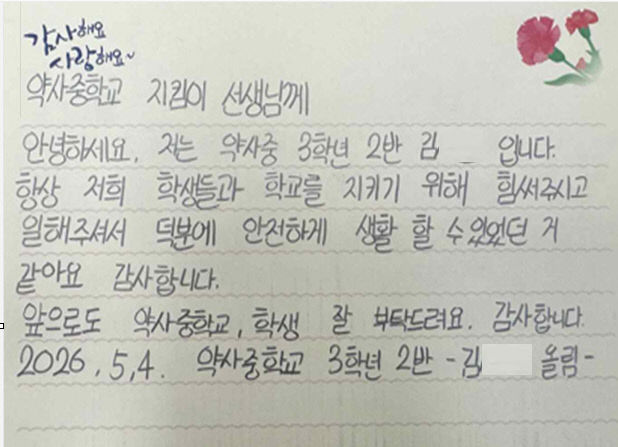 감사해요
사랑해요~
약사중학교 지킴이 선생님께
안녕하세요. 저는 약사중 3학년 2반 김 입니다.
항상 저희 학생들과 학교를 지키기 위해 힘써주시고
일해주셔서 덕분에 안전하게 생활 할 수 있었던 거
같아요 감사합니다.
앞으로도 약사중학교, 학생 잘 부탁드려요. 감사합니다.
2026. 5,4. 약사중학교 3학년 2반 -김 올림-